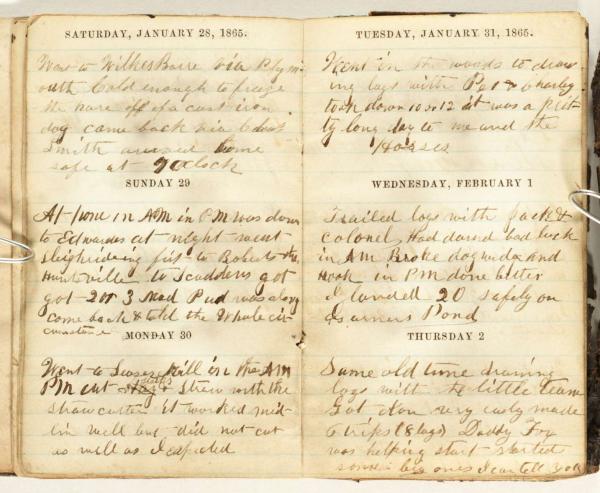 SATURDAY, JANUARY 28, 1865.
Went to Wilkes Barre via Plym
outh Cold enough to freeze
the nose off of a cast iron
dog came back via
Smith arrived home
safe at 7 Oclock
SUNDAY 29
At home in AM in PM was down
to Edwardes at night went
sleighriding first to Roberts the
Huntsville to Scadders got
got 2 or 3 Mad Pud was along
come back & told the Whole cir
cumstance
MONDAY 30
Went to Mill in the AM
PM cut Straw with the
straw cutter It worked mid
lin well but did not cut
as well as I expected
TUESDAY, JANUARY 31, 1865.
Went in the woods to draw
ing logs with Pet & Charley
took down 10 or 12 it was a pret
ty long day to me and the
Horses
WEDNESDAY, FEBRUARY 1
Trailed logs with Jack &
colonel Had darnd bad luck
in AM Broke dog wedge and
Hook in PM done better
I landed 20 safely on
Pond
THURSDAY 2
Same old tune drawing
logs with the little team
Got down very early made
6 trips (8 logs) Daddy Fox
was helping start started
some big ones I can tell you